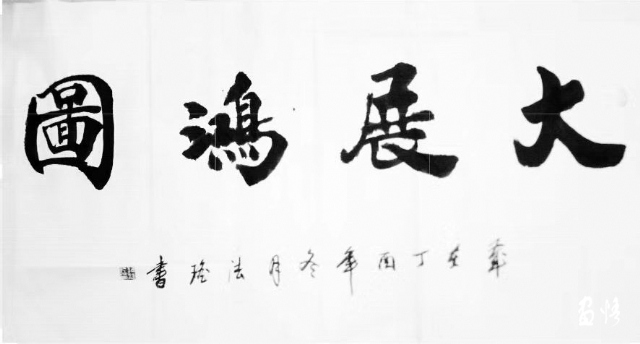 大展鴻圖
歲在丁酉年冬月法書